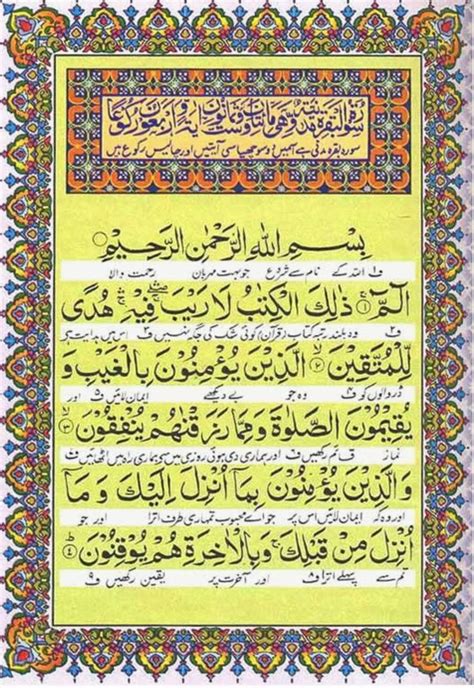 سورة البقرة مدنية وهي مائتان وست وثمانون اية واربعون ركوعا
سورہ بقرہ مدنی ہے اس میں دو سو چھیاسی آیتیں اور چالیس رکوع ہیں
بِسْمِ اللهِ الرَّحْمٰنِ الرَّحِيْمِ
اللہ کے نام سے شروع جو بہت مہربان رحمت والا
الٓمّٓ ۚ ذٰلِكَ الْكِتٰبُ لَا رَيْبَ فِيْهِ هُدًى
وہ بلند رتبہ کتاب (قرآن) کوئی شک کی جگہ نہیں ف اس میں ہدایت ہے
لِّلْمُتَّقِيْنَ ۙ الَّذِيْنَ يُؤْمِنُوْنَ بِالْغَيْبِ وَ
ڈر والوں کو ف وہ جو بے دیکھے ایمان لائیں ف اور
يُقِيْمُوْنَ الصَّلٰوةَ وَمِمَّا رَزَقْنٰهُمْ يُنْفِقُوْنَ ۙ
نماز قائم رکھیں ف اور ہماری دی ہوئی روزی میں سے ہماری راہ میں اٹھائیں ف
وَالَّذِيْنَ يُؤْمِنُوْنَ بِمَآ اُنْزِلَ اِلَيْكَ وَمَآ
اور وہ کہ ایمان لائیں اس پر جو اے محبوب تمہاری طرف اترا اور جو
اُنْزِلَ مِنْ قَبْلِكَ ۚ وَبِالْاٰخِرَةِ هُمْ يُوْقِنُوْنَ ۗ
تم سے پہلے اترا ف۸ اور آخرت پر یقین رکھیں ف۹